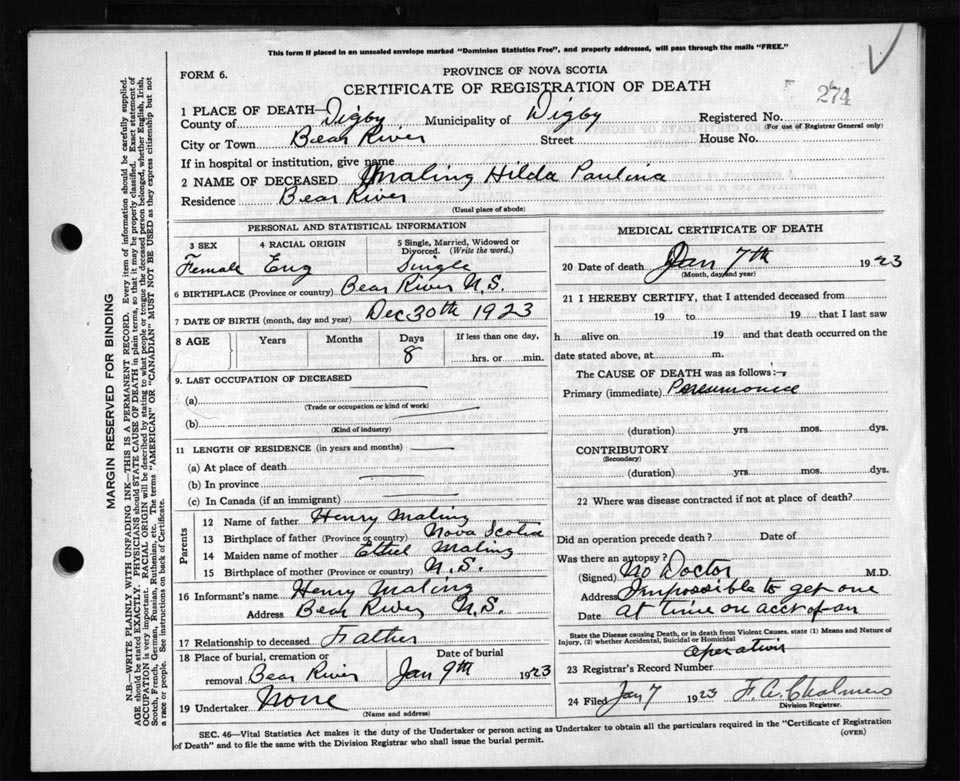 This form if placed in an unsealed envelope marked "Dominion Statistics Free", and properly addressed, will pass through the mails "FREE."
FORM 6.
PROVINCE OF NOVA SCOTIA
CERTIFICATE OF REGISTRATION OF DEATH
274
1 PLACE OF DEATH—
County of Digby Municipality of Digby Registered No.
(For use of Registrar General only)
City or Town Bear River Street House No.
If in hospital or institution, give name
2 NAME OF DECEASED Maling Hilda Paulina
Residence Bear River
(Usual place of abode)
PERSONAL AND STATISTICAL INFORMATION
3 SEX 4 RACIAL ORIGIN 5 Single, Married, Widowed or Divorced. (Write the word.)
Female Eng Single
6 BIRTHPLACE (Province or country) Bear River N.S.
7 DATE OF BIRTH (month, day and year) Dec 30th 1923
8 AGE Years Months Days If less than one day,
8 hrs. or min.
9. LAST OCCUPATION OF DECEASED
(a)
(Trade or occupation or kind of work)
(b)
(Kind of industry)
11 LENGTH OF RESIDENCE (in years and months)
(a) At place of death
(b) In province
(c) In Canada (if an immigrant)
Parents
12 Name of father Henry Maling
13 Birthplace of father (Province or country) Nova Scotia
14 Maiden name of mother Ethel Maling
15 Birthplace of mother (Province or country) N.S.
16 Informant's name Henry Maling
Address Bear River N.S.
17 Relationship to deceased Father
18 Place of burial, cremation or Date of burial
removal Bear River Jan 9th 1923
19 Undertaker None
(Name and address)
MEDICAL CERTIFICATE OF DEATH
20 Date of death Jan 7th 1923
(Month, day and year)
21 I HEREBY CERTIFY, that I attended deceased from
19 to 19 that I last saw
h alive on 19 and that death occurred on the
date stated above, at m.
The CAUSE OF DEATH was as follows:—
Primary (immediate) Pneumonia
(duration) yrs. mos. dys.
CONTRIBUTORY
(Secondary)
(duration) yrs. mos. dys.
22 Where was disease contracted if not at place of death?
Did an operation precede death? Date of
Was there an autopsy?
(Signed) No Doctor M.D.
Address Impossible to get one
Date at time on acct of an
State the Disease causing Death, or in death from Violent Causes, state (1) Means and Nature of
Injury, (2) whether Accidental, Suicidal or Homicidal
operation
23 Registrar's Record Number
24 Filed Jan 7 1923 F.A. Chalmers
Division Registrar.
SEC. 46—Vital Statistics Act makes it the duty of the Undertaker or person acting as Undertaker to obtain all the particulars required in the "Certificate of Registration
of Death" and to file the same with the Division Registrar who shall issue the burial permit.
(OVER)
MARGIN RESERVED FOR BINDING
N.B.—WRITE PLAINLY WITH UNFADING INK—THIS IS A PERMANENT RECORD. Every item of information should be carefully supplied.
AGE should be stated EXACTLY. PHYSICIANS should STATE CAUSE OF DEATH in plain terms, so that it may be properly classified. Exact statement of
OCCUPATION is very important. RACIAL ORIGIN will be described by stating to what people or tongue the deceased person belonged, whether English, Irish,
Scotch, French, German, Russian, Ruthenian, etc. The terms "AMERICAN" OR "CANADIAN" MUST NOT BE USED as they express citizenship but not
a race or people. See instructions on back of Certificate.